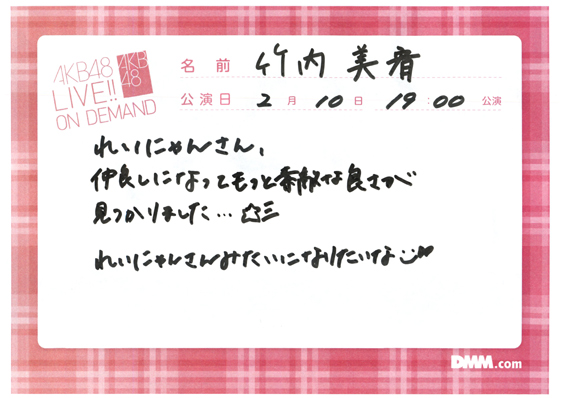 AKB48
LIVE!!
ON DEMAND
AKB
48
名前 竹内美宥
公演日 2月10日 19:00 公演
れいにゃんさん、
仲良しになってもっと素敵な良さが
見つかりました…☆三
れいにゃんさんみたいになりたいな
DMM.com